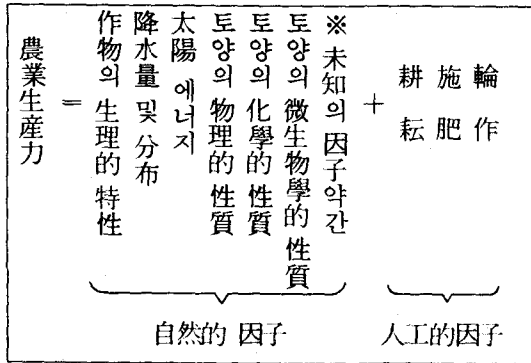 農業生産力
=
作物의 生理的 特性
降水量 및 分布
太陽 에너지
토양의 物理的 性質
토양의 化學的 性質
토양의 微生物學的 性質
※ 未知의 因子약간
+
耕耘
施肥
輪作
自然的 因子
人工的因子